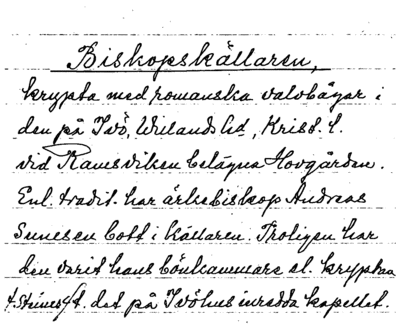 Biskopskällaren,
krypta med romanska valvbågar i
den på Ivö, Willands hd, Krist. l.
vid Ramsviken belägna Hovgården.
Enl. tradit. har ärkebiskop Andreas
Sunesen bott i källaren. Troligen har
den varit hans bönkammare el. kryptan
t. det på Ivöhus inredda kapellet.